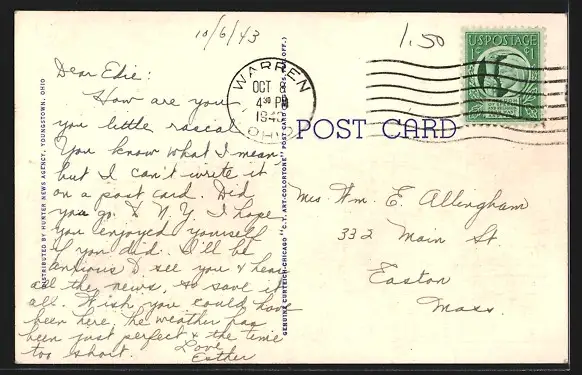 10/6/43
1.50
U.S. POSTAGE
1¢
WARREN
OCT 8
4 30 PM
1943
OHIO
POST CARD
Dear Edie:
How are you
you little rascal
You know what I mean,
but I can't write it
on a post card. Did
you go to N.Y. I hope
you enjoyed yourself
if you did. I'll be
anxious to see you & hear
all the news, so save it
all. Wish you could have
been here. The weather has
been just perfect & the time
too short.
Love
Esther
Mrs Wm. E. Allingham
332 Main St.
Easton
Mass.
DISTRIBUTED BY HUNTER NEWS AGENCY, YOUNGSTOWN, OHIO
GENUINE CURTEICH-CHICAGO "C.T. ART-COLORTONE" POST CARD (REG. U.S. PAT. OFF.)